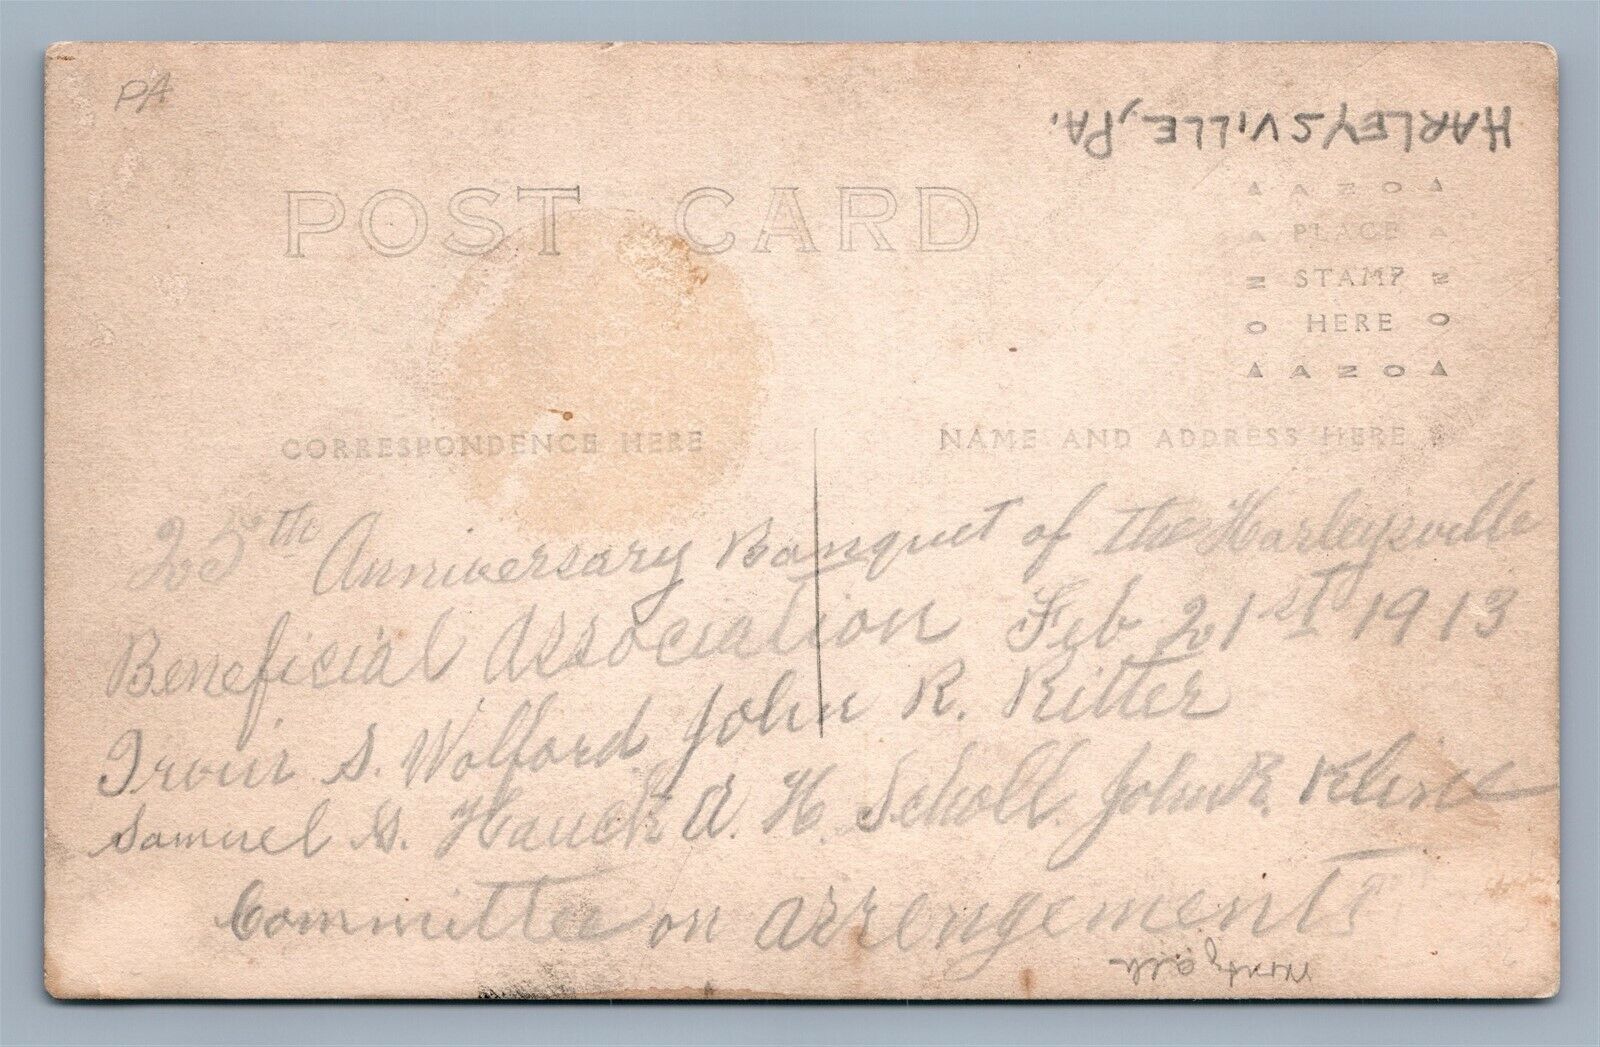 PA
HARLEYSVILLE, PA.
POST CARD
AZO
PLACE
STAMP
HERE
AZO
CORRESPONDENCE HERE
NAME AND ADDRESS HERE
25th Anniversary Banquet of the Harleysville
Beneficial Association Feb 21st 1913
Irvin S. Wolford John R. Ritter
Samuel G. Hauck A. H. Scholl. John R. Kline
Committee on arrengements